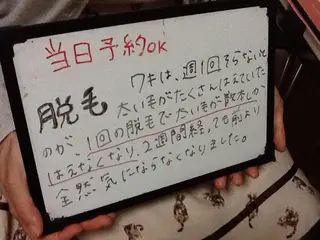 当日予約OK
脱毛
ワキは、週1回そらないと
太い毛がたくさんはえていた
のが、1回の脱毛で太い毛が散本しか
はえなくなり、2週間経っても前より
全然気にならなくなりました。